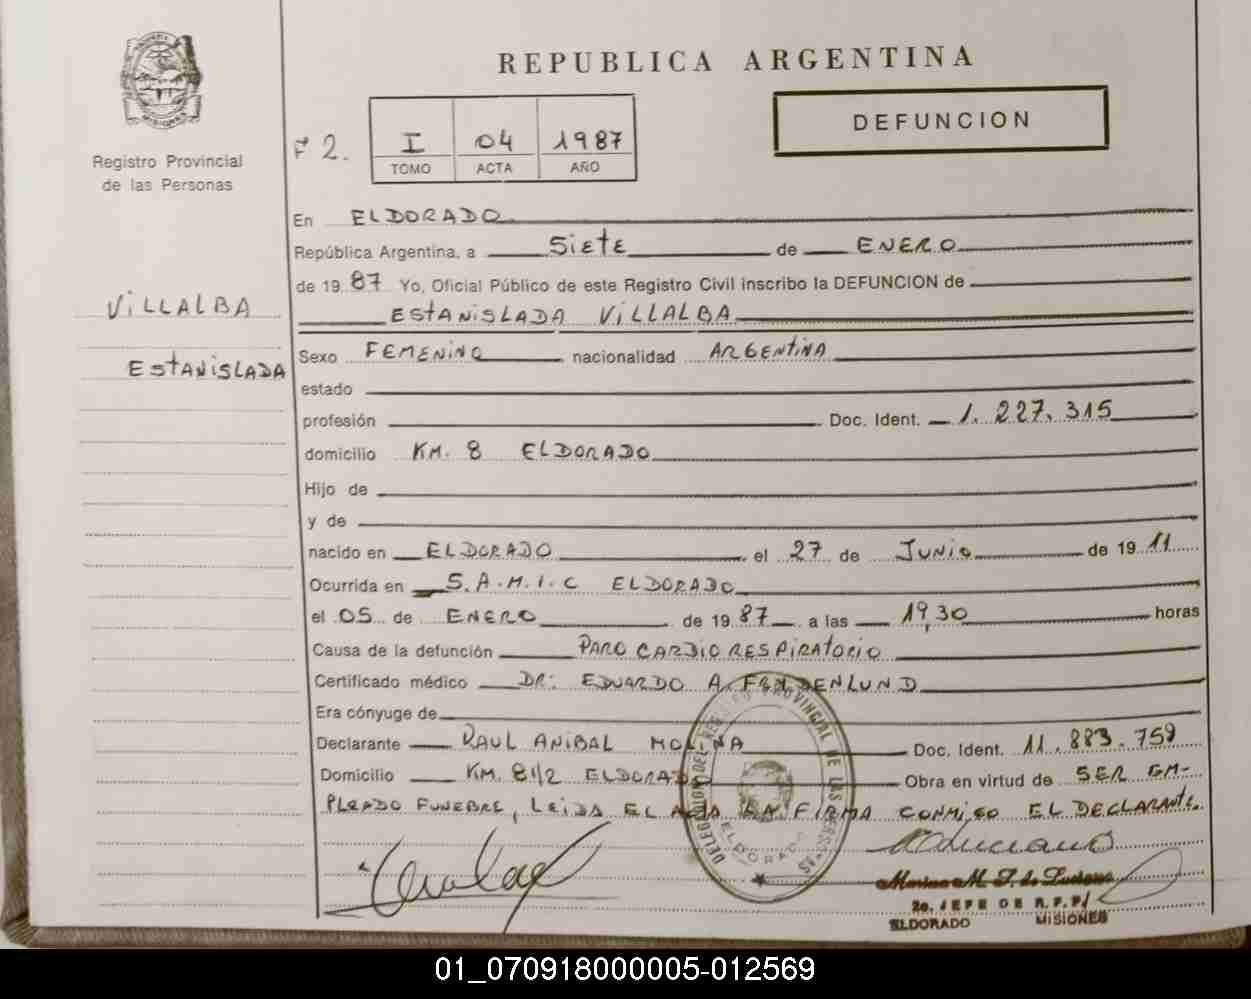 REPUBLICA ARGENTINA
MISIONES
Registro Provincial
de las Personas
F 2.
I 04 1987
TOMO ACTA AÑO
DEFUNCION
VILLALBA
ESTANISLADA
En ELDORADO
República Argentina, a SIETE de ENERO
de 19 87 Yo, Oficial Público de este Registro Civil inscribo la DEFUNCION de
ESTANISLADA VILLALBA
Sexo FEMENINO nacionalidad ARGENTINA
estado
profesión Doc. Ident. 1.227.315
domicilio KM. 8 ELDORADO
Hijo de
y de
nacido en ELDORADO el 27 de JUNIO de 19 11
Ocurrida en S.A.M.I.C ELDORADO
el 05 de ENERO de 19 87 a las 19,30 horas
Causa de la defunción PARO CARDIO RESPIRATORIO
Certificado médico DR: EDUARDO A. FRYDENLUND
Era cónyuge de
Declarante RAUL ANIBAL MOLINA Doc. Ident. 11.883.759
Domicilio KM. 8 1/2 ELDORADO Obra en virtud de SER EM-
PLEADO FUNEBRE, LEIDA EL ACTA LA FIRMA CONMIGO EL DECLARANTE.
DELEGACION DEL REGISTRO PROVINCIAL DE LAS PERSONAS
ELDORADO
2o. JEFE DE R.P.P.
ELDORADO MISIONES
01_070918000005-012569